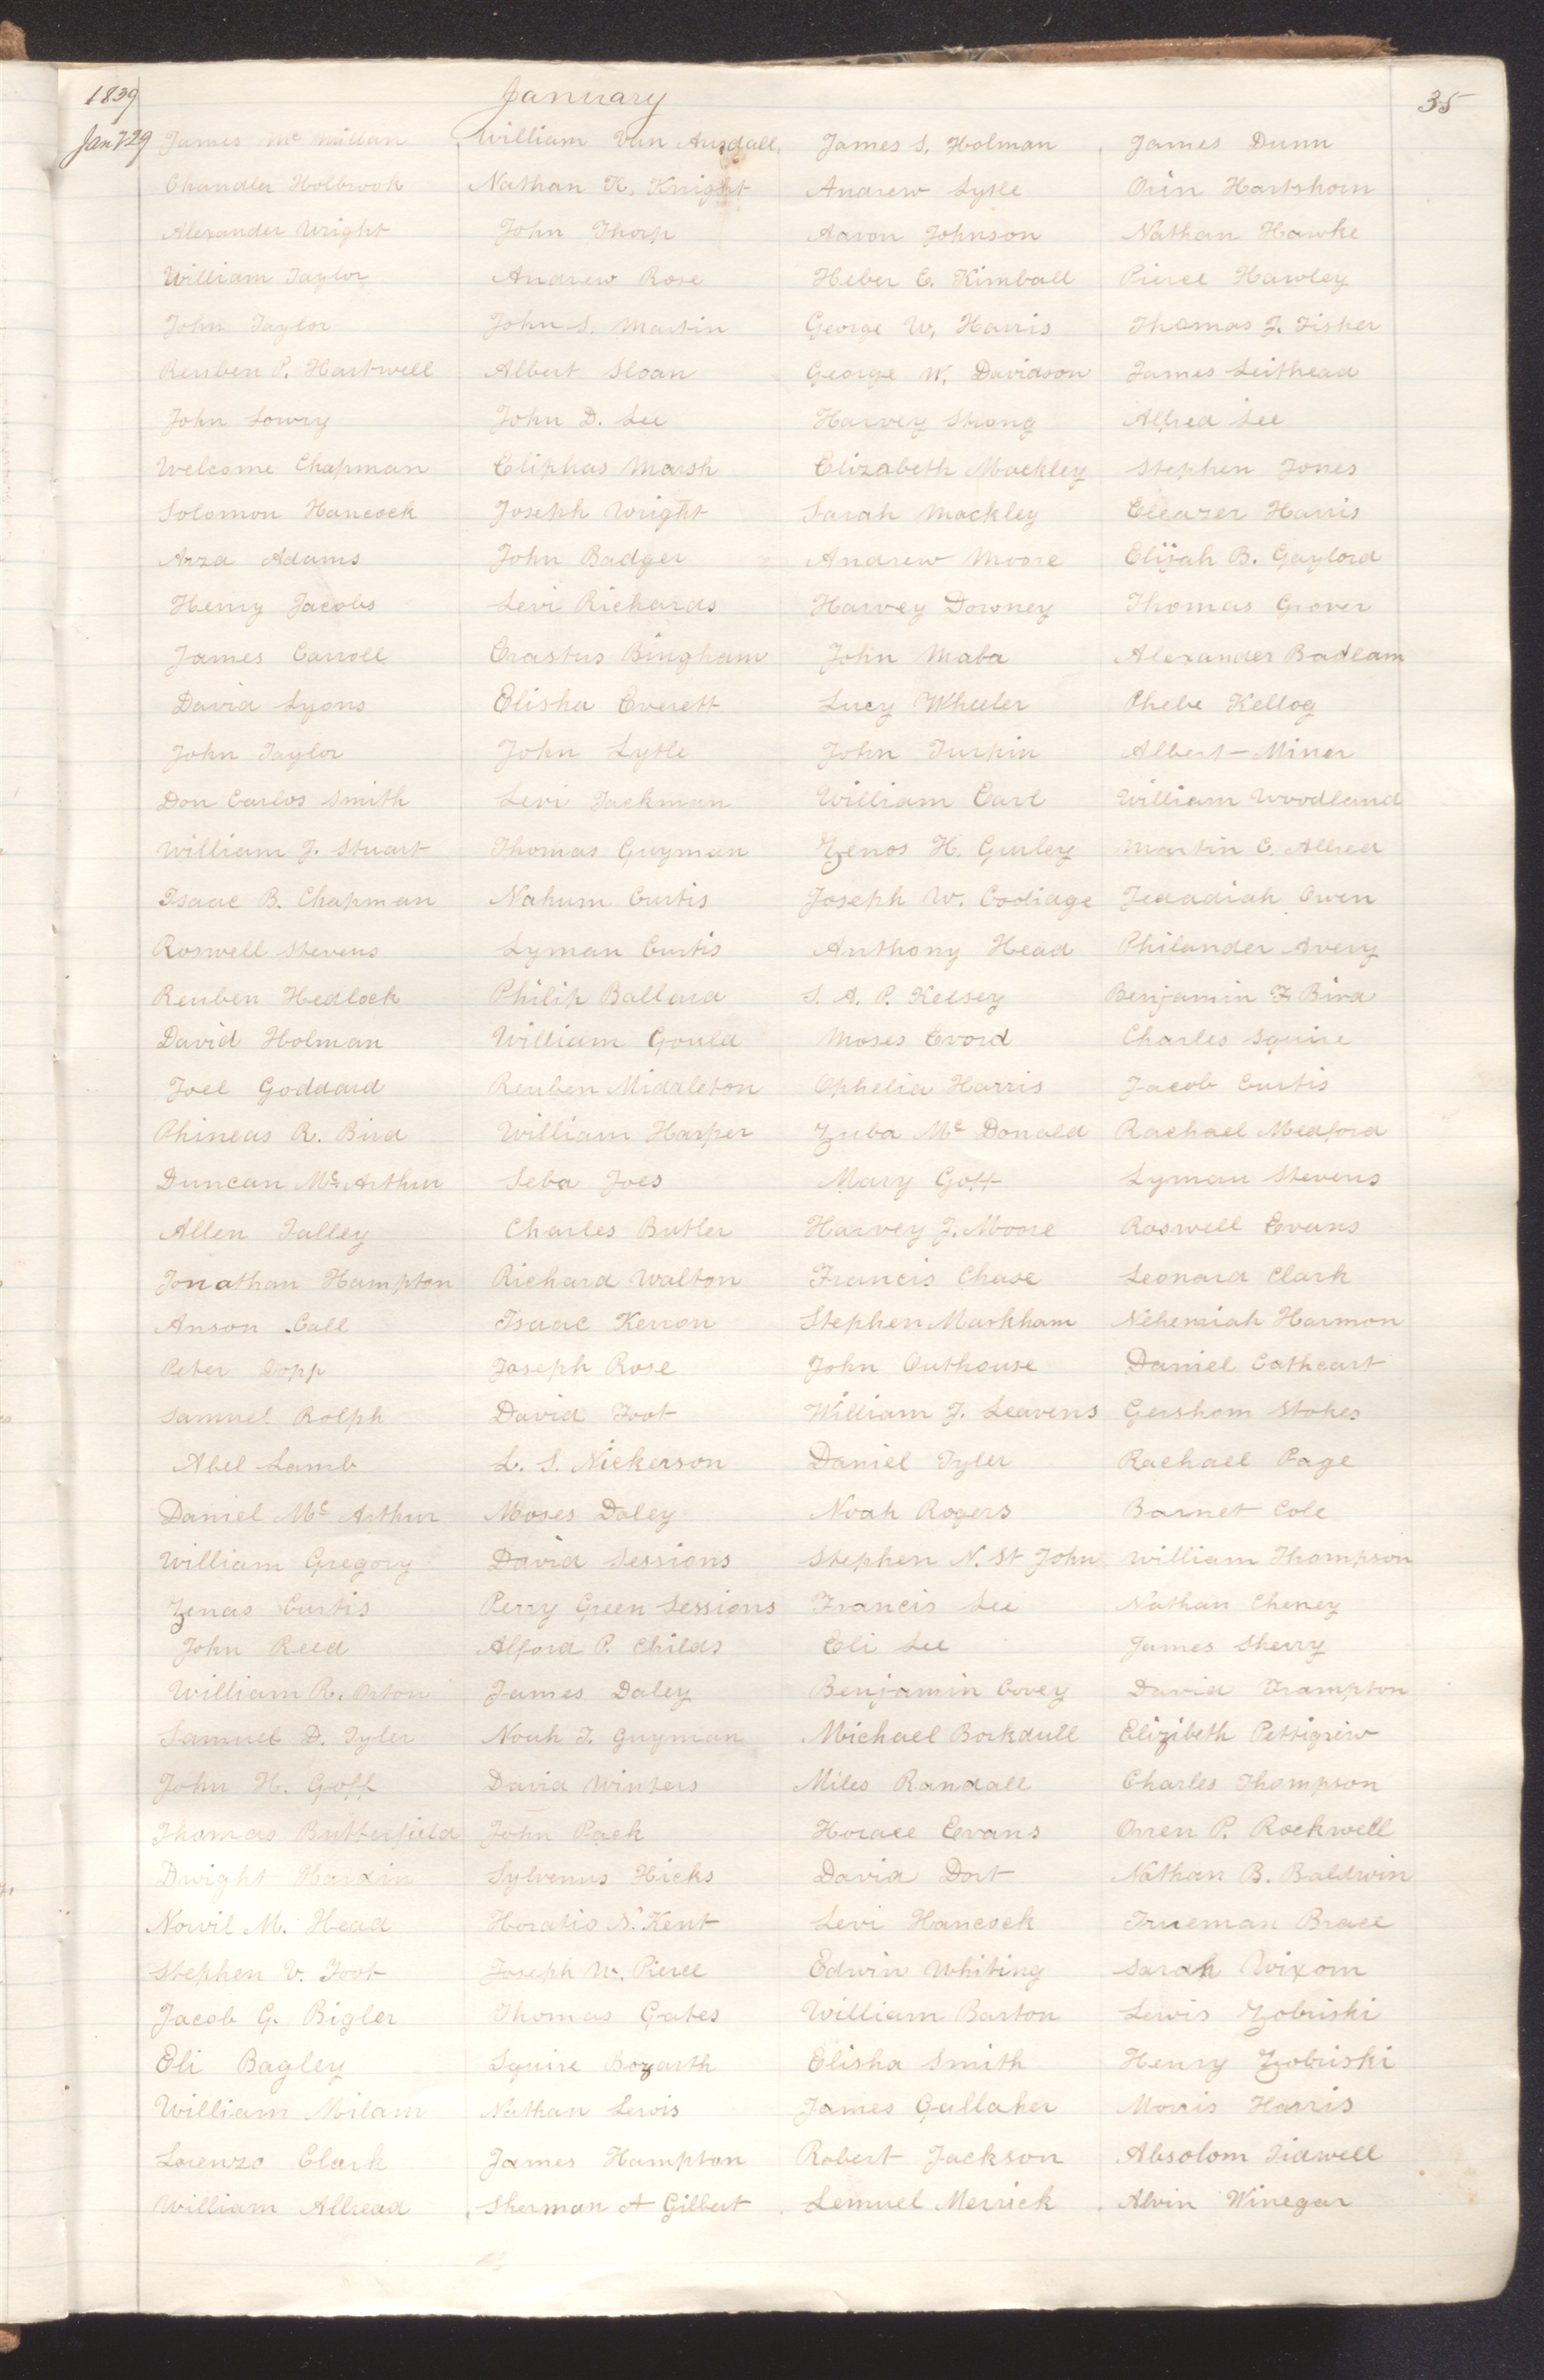 1839 January 35
Jany 29 James Mc Millan William Van Ausdall, James S. Holman James Dunn
Chandler Holbrook Nathan K. Knight Andrew Lytle Orin Hartshorn
Alexander Wright John Thorp Aaron Johnson Nathan Hawke
William Taylor Andrew Rose Heber C. Kimball Pierce Hawley
John Taylor John S. Martin George W. Harris Thomas J. Fisher
Reuben P. Hartwell Albert Sloan George W. Davidson James Leithead
John Lowry John D. Lee Harvey Strong Alfred Lee
Welcome Chapman Eliphas Marsh Elizabeth Mackley Stephen Jones
Solomon Hancock Joseph Wright Sarah Mackley Eleazer Harris
Arza Adams John Badger Andrew Moore Elijah B. Gaylord
Henry Jacobs Levi Richards Harvey Downey Thomas Grover
James Carroll Erastus Bingham John Maba Alexander Badlam
David Lyons Elisha Everett Lucy Wheeler Phebe Kellog
John Taylor John Lytle John Turpin Albert Miner
Don Carlos Smith Levi Jackman William Earl William Woodland
William J. Stuart Thomas Guyman Zenos H. Gurley Martin C. Allred
Isaac B. Chapman Nahum Curtis Joseph W. Coolidge Jedadiah Owen
Roswell Stevens Lyman Curtis Anthony Head Philander Avery
Reuben Hedlock Philip Ballard S. A. P. Kelsey Benjamin F. Bird
David Holman William Gould Moses Evord Charles Squire
Joel Goddard Reuben Middleton Ophelia Harris Jacob Curtis
Phineas R. Bird William Harper Zuba Mc Donald Rachael Medford
Duncan Mc Arthur Seba Joes Mary Goff Lyman Stevens
Allen Talley Charles Butler Harvey J. Moore Roswell Evans
Jonathan Hampton Richard Walton Francis Chase Leonard Clark
Anson Call Isaac Kerron Stephen Markham Nehemiah Harmon
Peter Dopp Joseph Rose John Outhouse Daniel Cathcart
Samuel Rolph David Foot William J. Leavens Gershom Stokes
Abel Lamb L. S. Nickerson Daniel Tyler Rachael Page
Daniel Mc Arthur Moses Daley Noah Rogers Barnet Cole
William Gregory David Sessions Stephen N. St John William Thompson
Zenas Curtis Perry Green Sessions Francis Lee Nathan Cheney
John Reed Alford P. Childs Eli Lee James Sherry
William R. Orton James Daley Benjamin Covey David Frampton
Samuel D. Tyler Noah T. Guyman Michael Borkdull Elizibeth Pettigrew
John H. Goff David Winters Miles Randall Charles Thompson
Thomas Butterfield John Pack Horace Evans Orren P. Rockwell
Dwight Hardin Sylvenus Hicks David Dort Nathan B. Baldwin
Norvil M. Head Horatio N. Kent Levi Hancock Trueman Brace
Stephen V. Foot Joseph W. Pierce Edwin Whiting Sarah Wixom
Jacob G. Bigler Thomas Gates William Barton Lewis Zobriski
Eli Bagley Squire Bozarth Elisha Smith Henry Zobriski
William Milam Nathan Lewis James Gallaher Morris Harris
Lorenzo Clark James Hampton Robert Jackson Absolom Tidwell
William Allread Sherman A Gilbert Lemuel Merrick Alvin Winegar